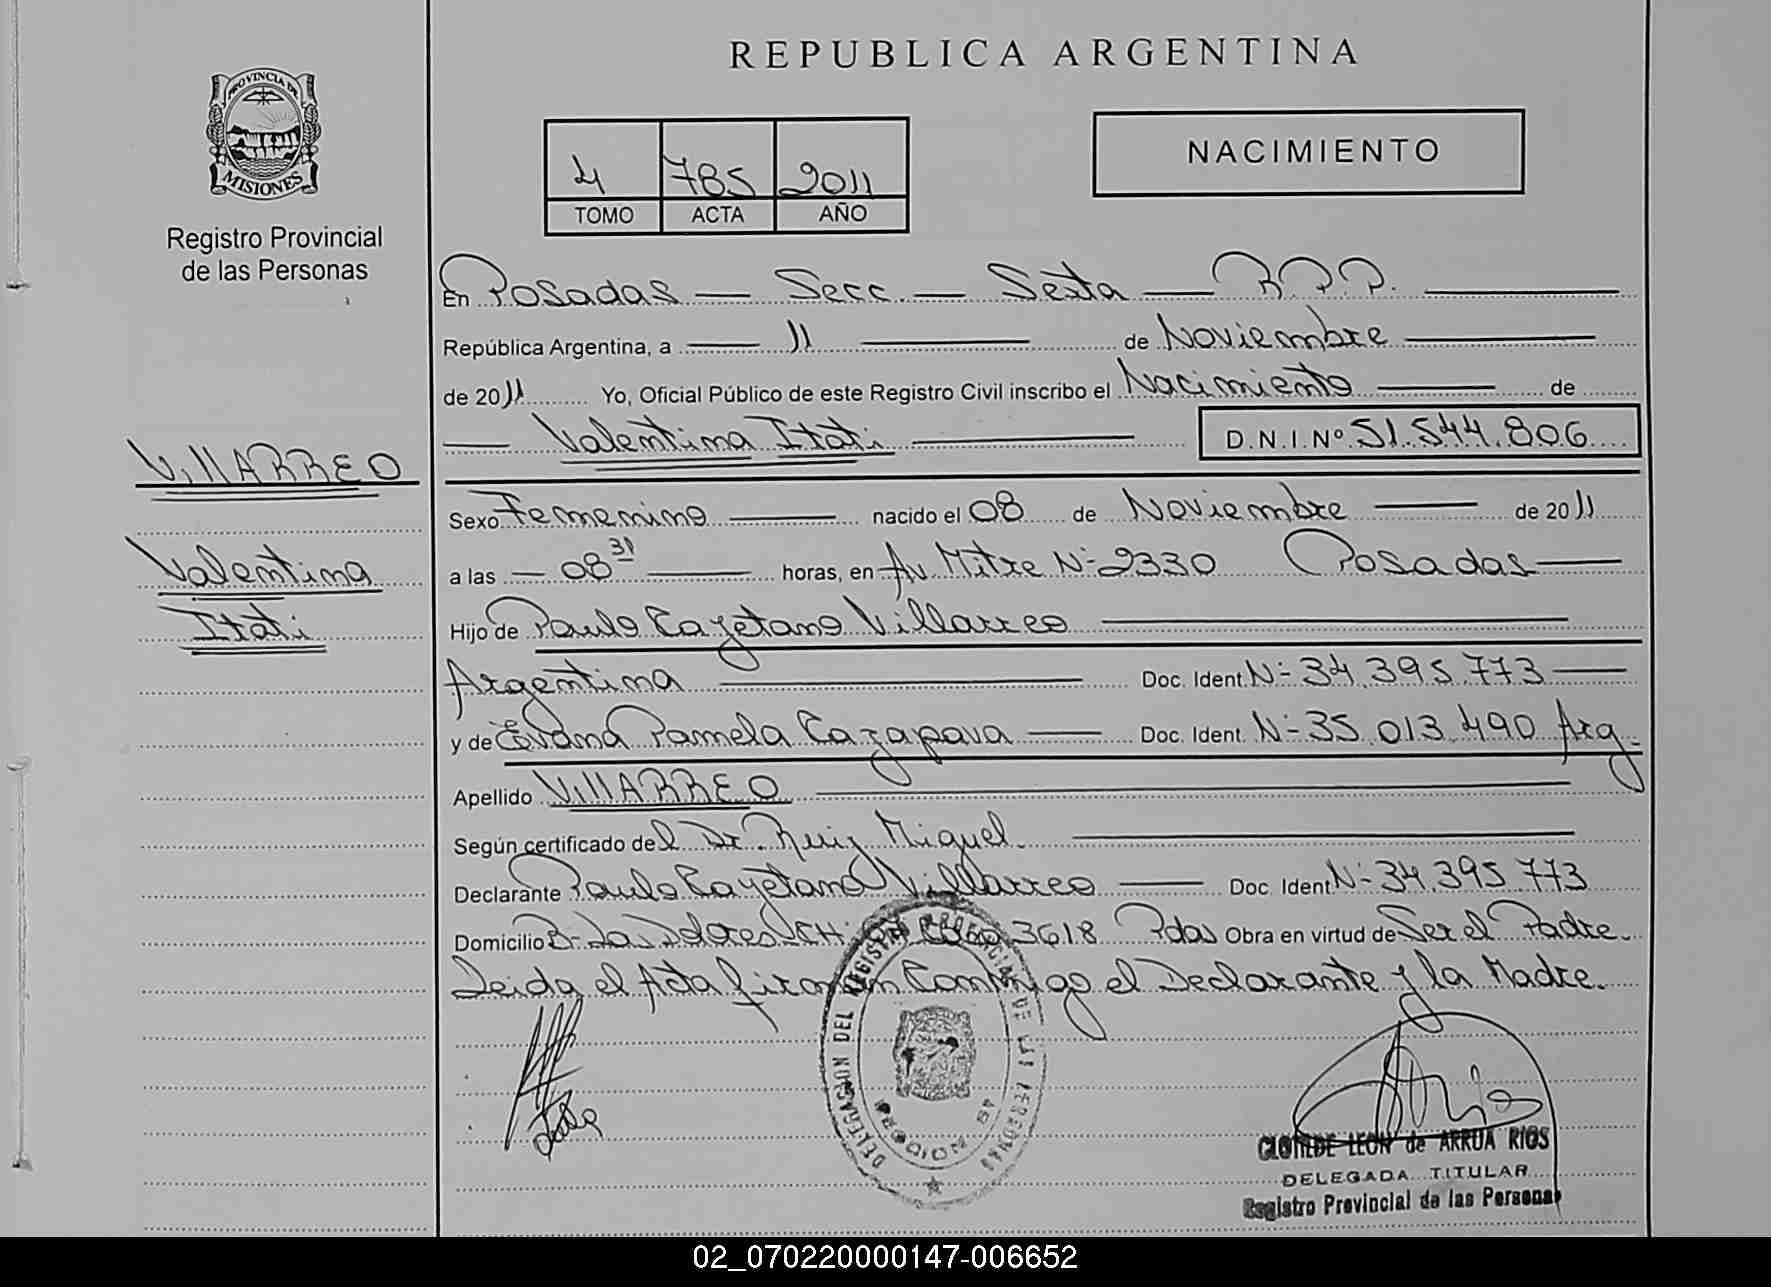 REPUBLICA ARGENTINA
PROVINCIA DE
MISIONES
Registro Provincial
de las Personas
4 785 2011
TOMO ACTA AÑO
NACIMIENTO
En Posadas — Secc. — Sexta — R.P.P.
República Argentina, a 11 de Noviembre
de 2011 Yo, Oficial Público de este Registro Civil inscribo el Nacimiento de
Valentina Itati D.N.I.Nº 51.544.806
VillARREO
Valentina
Itati
Sexo Femenino nacido el 08 de Noviembre de 2011
a las 08 31 horas, en Av. Mitre Nº 2330 Posadas
Hijo de Paulo Cayetano Villarreo
Argentina Doc. Ident. Nº 34.395.773
y de Evana Pamela Cazapava Doc. Ident. Nº 35.013.490 Arg.
Apellido VillARREO
Según certificado del Dr. Ruiz Miguel.
Declarante Paulo Cayetano Villarreo Doc. Ident. Nº 34.395.773
Domicilio Bº Las Dolores CH 3618 Pdas Obra en virtud de Ser el Padre.
Leida el Acta firman Conmigo el Declarante y la Madre.
DELEGACION DEL REGISTRO PROVINCIAL DE LAS PERSONAS
CLOTILDE LEON de ARRUA RIOS
DELEGADA TITULAR
Registro Provincial de las Personas
02_070220000147-006652